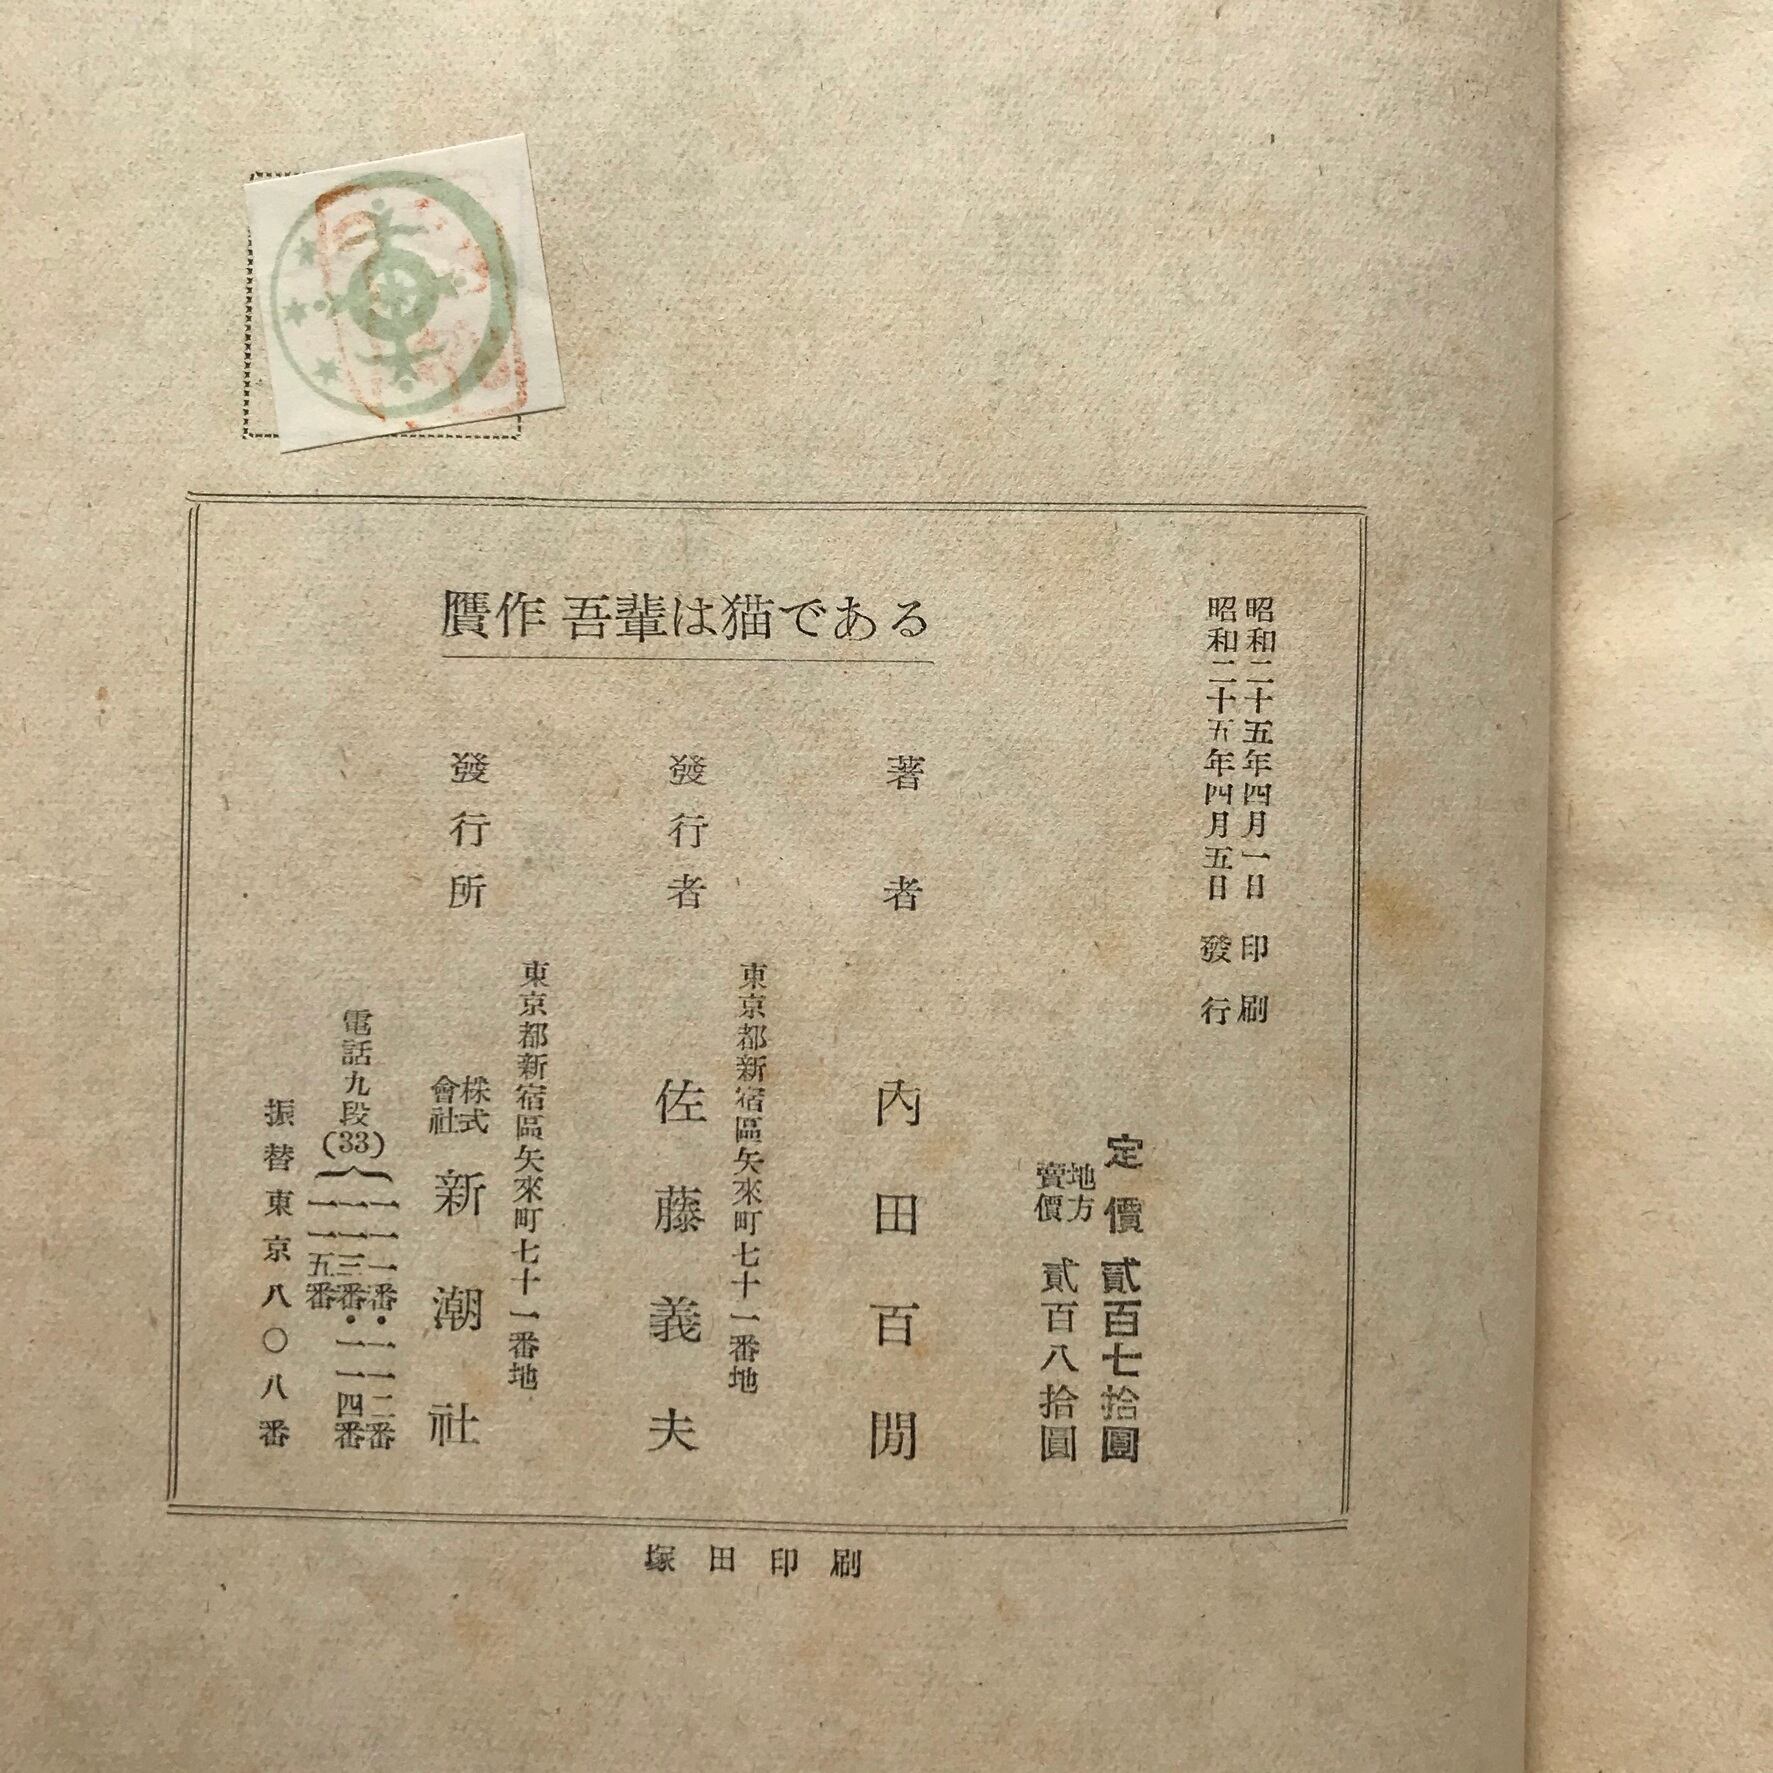 贋作 吾輩は猫である
昭和二十五年四月一日 印刷
昭和二十五年四月五日 發行
定價 貳百七拾圓
地方賣價 貳百八拾圓
著者 內田百閒
東京都新宿區矢來町七十一番地
發行者 佐藤義夫
東京都新宿區矢來町七十一番地
發行所 株式會社 新潮社
電話九段(33)
一一一番・一一二番
一一三番・一一四番
一一五番
振替東京八〇八番
塚田印刷